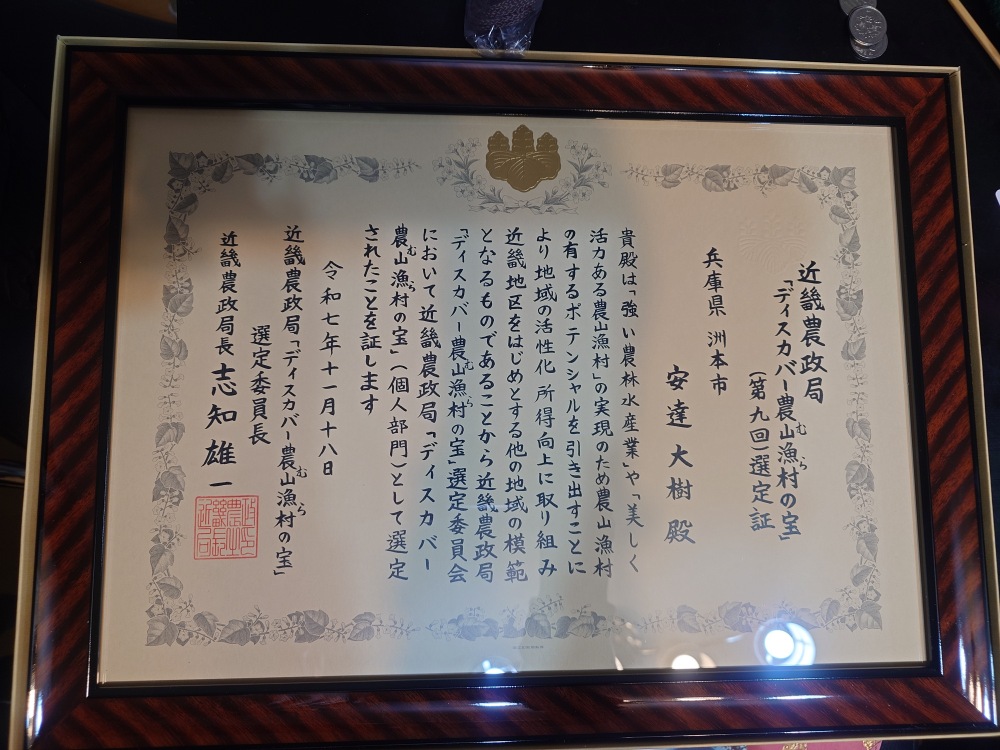 近畿農政局
「ディスカバー農山漁村の宝」
むら
(第九回)選定証
兵庫県 洲本市
安達大樹殿
貴殿は「強い農林水産業」や「美しく
活力ある農山漁村」の実現のため農山漁村
の有するポテンシャルを引き出すことに
より地域の活性化 所得向上に取り組み
近畿地区をはじめとする他の地域の模範
となるものであることから近畿農政局
「ディスカバー農山漁村の宝」選定委員会
むら
において近畿農政局「ディスカバー
農山漁村の宝」(個人部門)として選定
むら
されたことを証します
令和七年十一月十八日
近畿農政局「ディスカバー農山漁村の宝」
むら
選定委員長
近畿農政局長 志知雄一